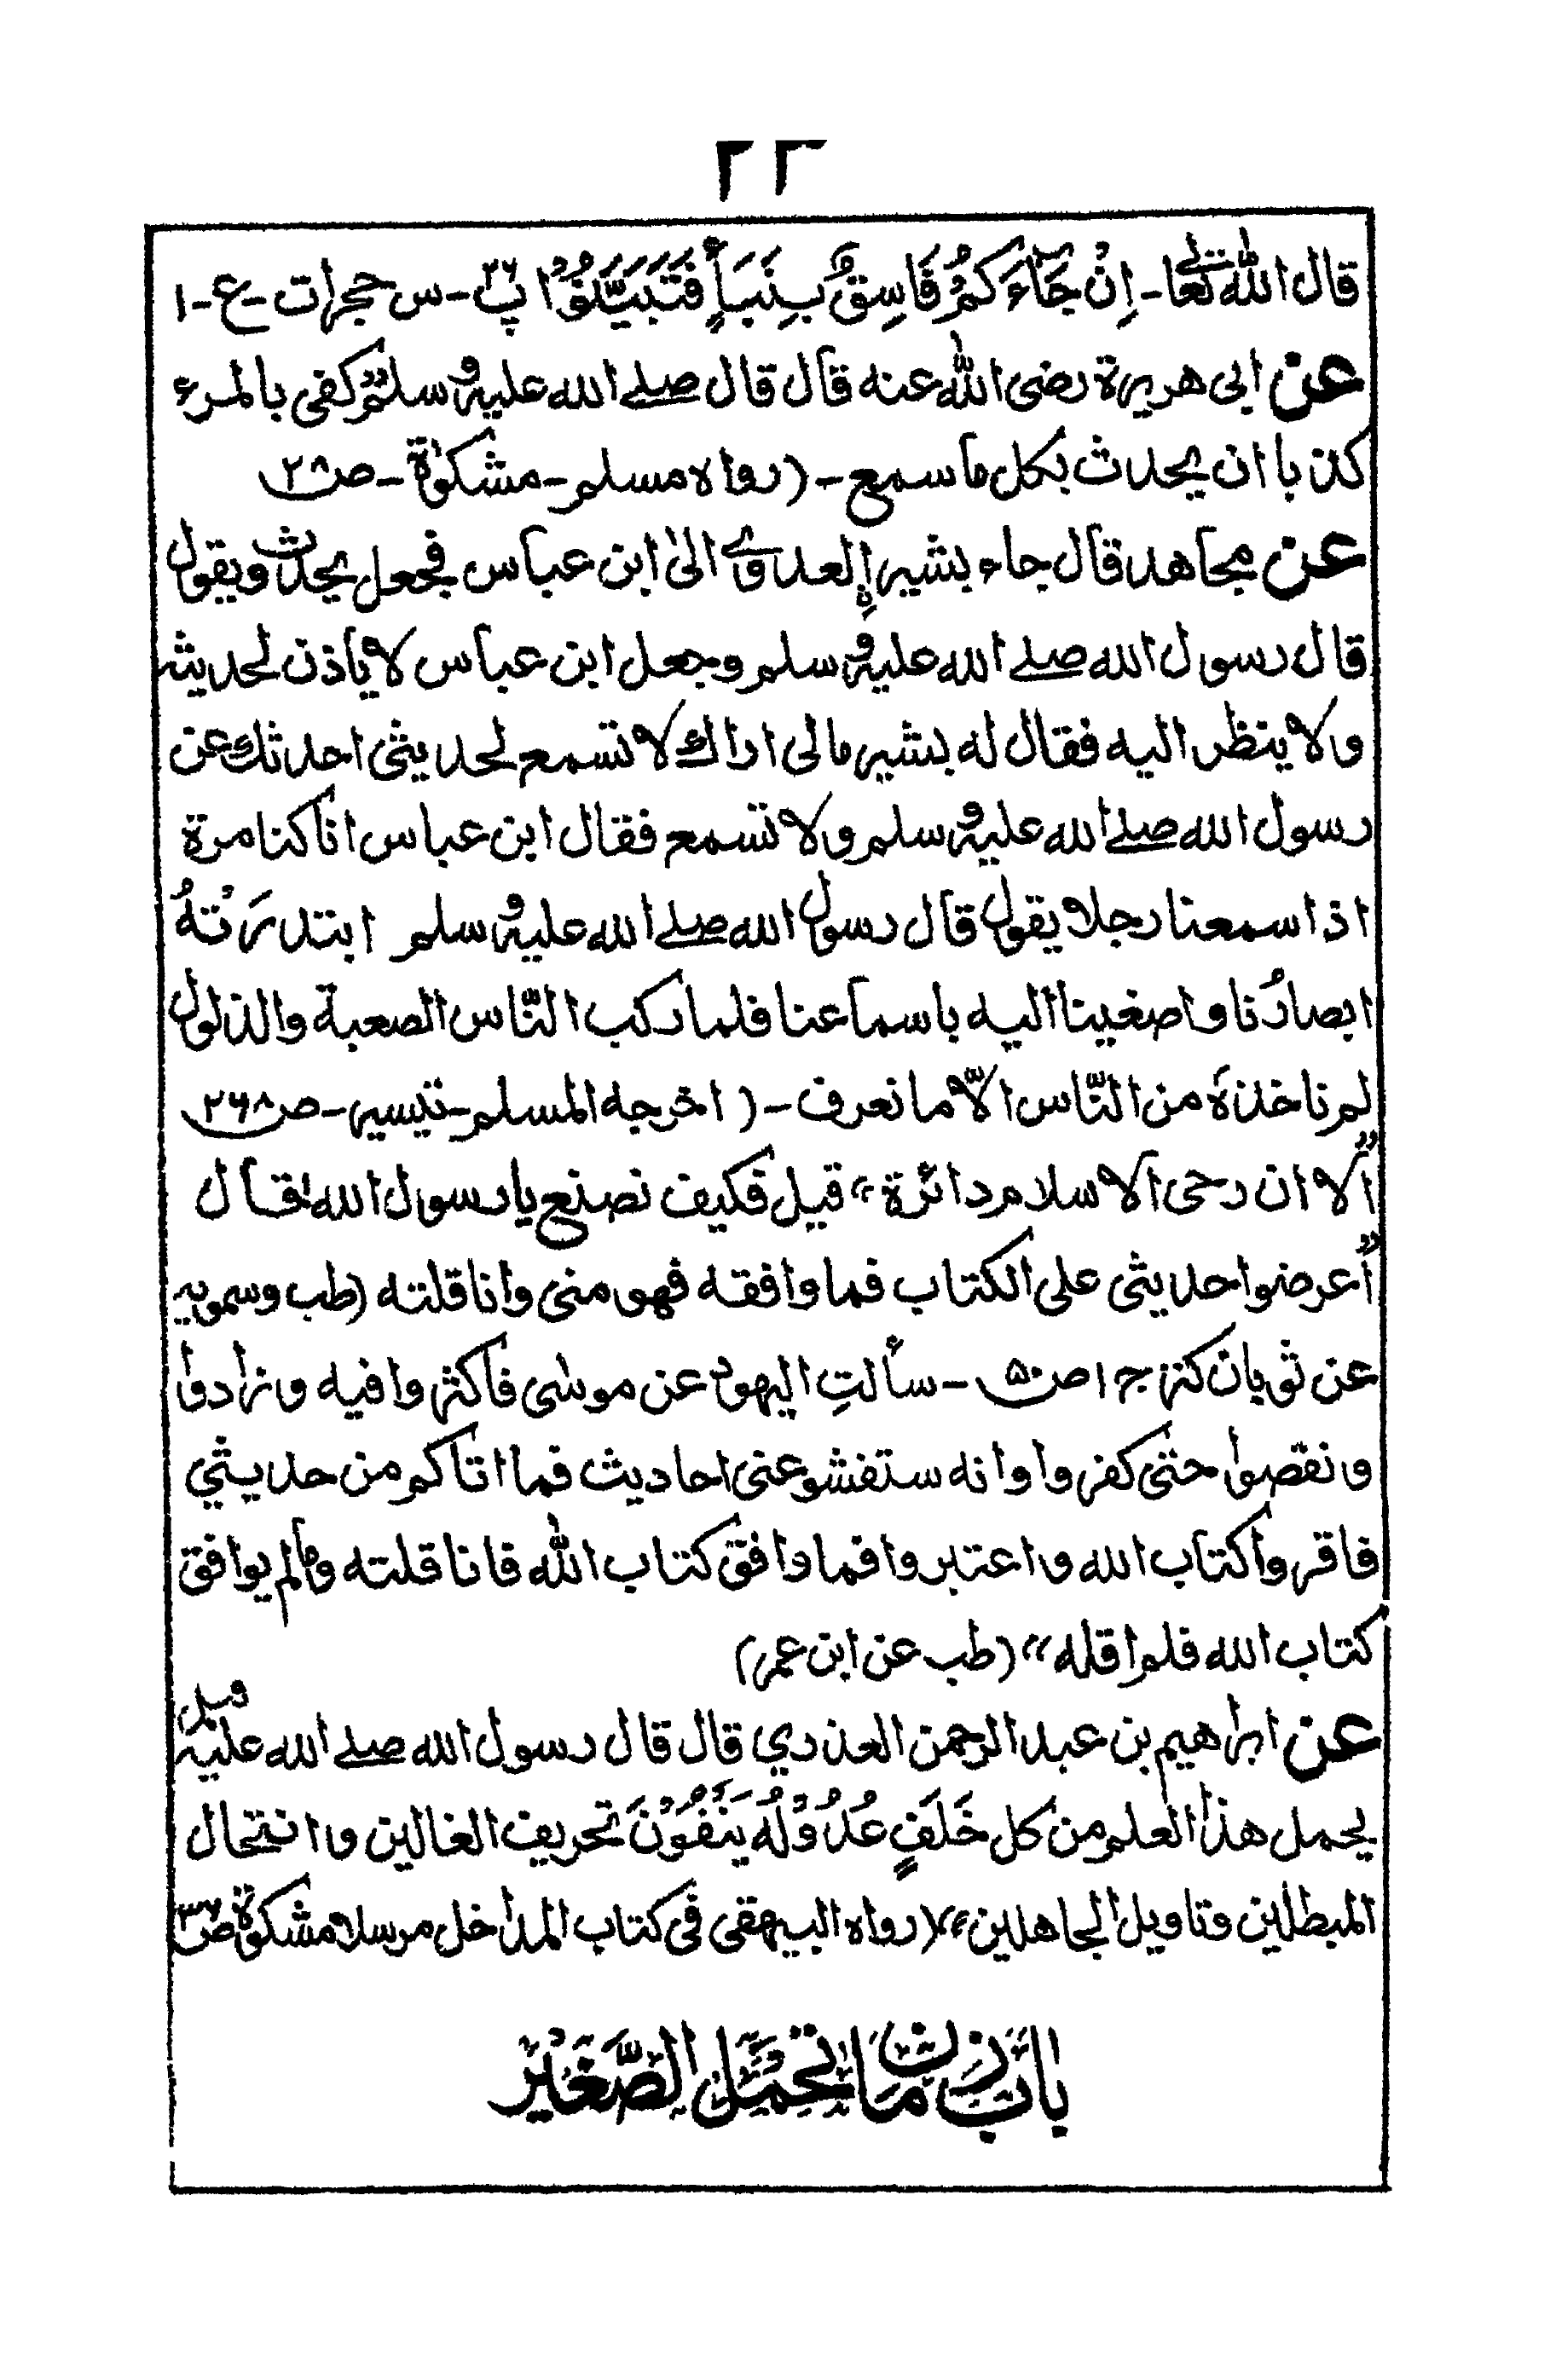 ٢٢
قال الله تعالى - اِنْ جَآءَكُمْ فَاسِقٌۢ بِنَبَأٍ فَتَبَيَّنُوْا پ٢٦ - س حجرات - ع - ١
عن ابى هريرة رضى الله عنه قال قال صلے الله عليه وسلم "كفى بالمرء
كذبا ان يحدث بكل ما سمع - (رواه مسلم - مشكوٰة - ص٢٨
عن مجاهد قال جاء بشير العدوي الىٰ ابن عباس فجعل يحدث ويقول
قال رسول الله صلے الله عليه وسلم وجعل ابن عباس لا ياذن لحديثه
ولا ينظر اليه فقال له بشير مالى اراك لا تسمع لحديثى احدثك عن
رسول الله صلے الله عليه وسلم ولا تسمع فقال ابن عباس انا كنا مرة
اذا سمعنا رجلا يقول قال رسول الله صلے الله عليه وسلم ابتدرَتْهُ
ابصارُنا واصغينا اليه باسماعنا فلما ركب النّاس الصعبة والذلول
لم ناخذهٗ من النّاس الّا ما نعرف - (اخرجه المسلم - تيسير - ص٢٦٨
"الا ان رحى الاسلام دائرة" قيل فكيف نصنع يا رسول الله! قال
"اعرضوا حديثى على الكتاب فما وافقه فهو منى وانا قلته (طب وسمويه
عن ثوبان كنز ج ١ ص٥٠ - سألتِ اليهود عن موسٰى فاكثروا فيه وزادوا
ونقصوا حتى كفروا وانه ستفشو عنى احاديث فما اتاكم من حديثي
فاقروا كتاب الله واعتبروا فما وافق كتاب الله فانا قلته وما لم يوافق
كتاب الله فلم اقله" (طب عن ابن عمر)
عن ابراهيم بن عبد الرحمن العذري قال قال رسول الله صلے الله عليه وسلم
يحمل هذا العلم من كل خَلَفٍ عُدُوْلُهُ يَنْفُوْنَ تحريف الغالين وانتحال
المبطلين وتاويل الجاهلين" (رواه البيهقى فى كتاب المداخل مرسلا مشكوة ص٣٦
باب زمان تحمل الصَّغير